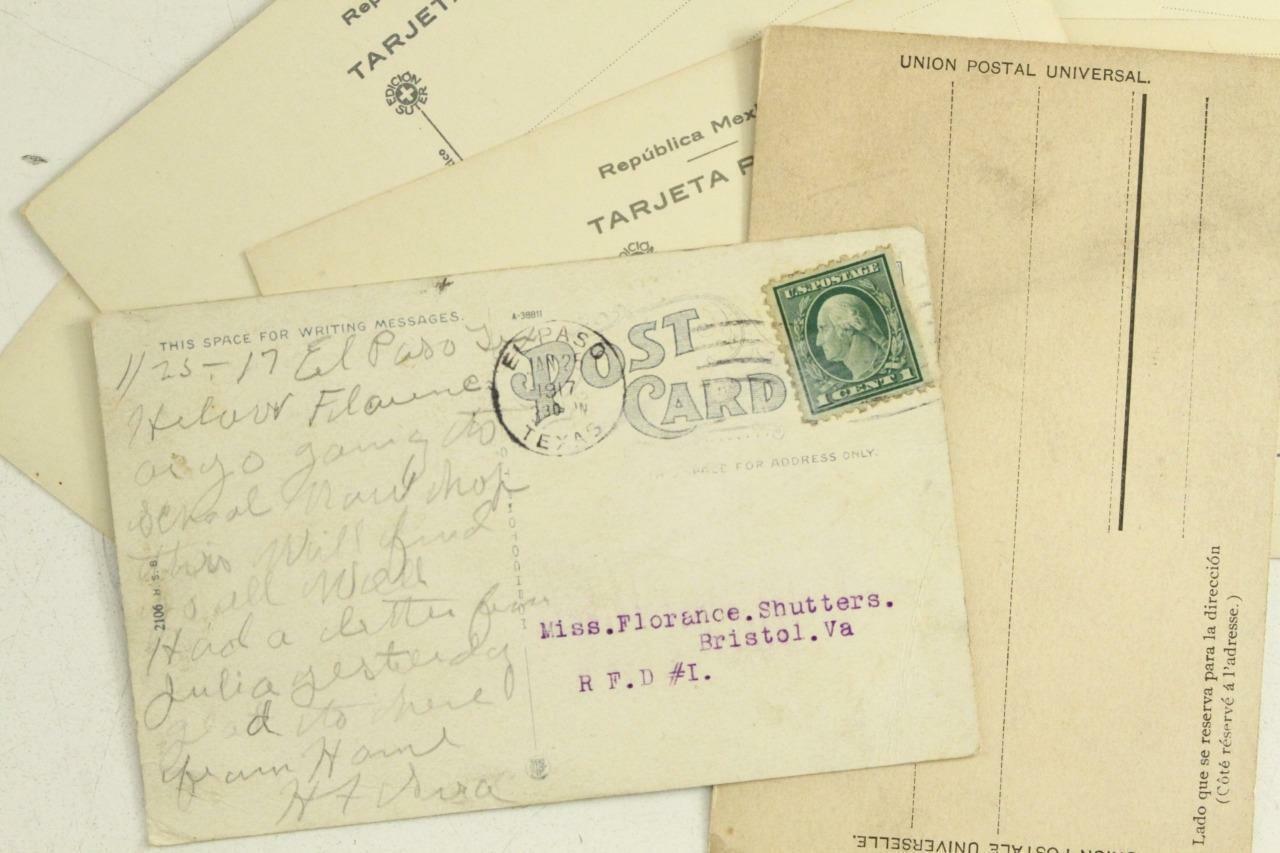 Rep
TARJET
EDICION
SUTER
República Mex
TARJETA P
UNION POSTAL UNIVERSAL.
Lado que se reserva para la dirección
(Côté réservé á l'adresse.)
ION POSTALE UNIVERSELLE.
THIS SPACE FOR WRITING MESSAGES.
A-38811
POST
CARD
EL PASO
JAN 25
1917
TEXAS
U.S. POSTAGE
1 CENT 1
SPACE FOR ADDRESS ONLY.
1/25-17 El Paso Tex
Florence
going to
School
this will find
all well
Had a letter from
Julia yesterday
glad to here
from Home
2106 H. S. B.
Miss.Florance.Shutters.
Bristol.Va
R F.D #I.